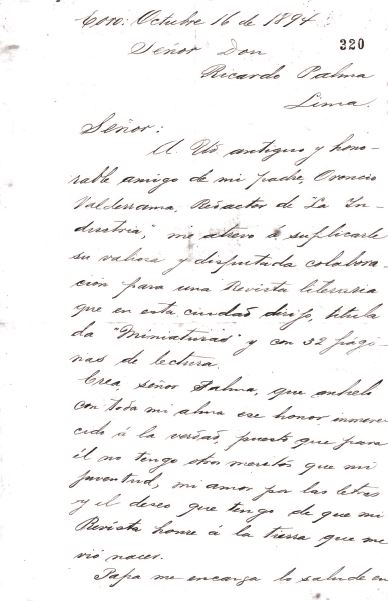 Coro: Octubre 16 de 1894
320
Señor Don
Ricardo Palma
Lima.
Señor:
A Ud. antiguo y hono-
rable amigo de mi padre, Oroncio
Valderrama, Redactor de "La In-
dustria," me atrevo á suplicarle
su valiosa y disputada colabora-
ción para una Revista literaria
que en esta ciudad dirijo, titula
da "Miniaturas" y con 32 pági-
nas de lectura.
Crea, señor Palma, que anhelo
con toda mi alma ese honor inmere
cido á la verdad, puesto que para
él no tengo otros meritos que mi
juventud, mi amor por las letras
y el deseo que tengo de que mi
Revista honre á la tierra que me
vió nacer.
Papa me encarga lo salude en